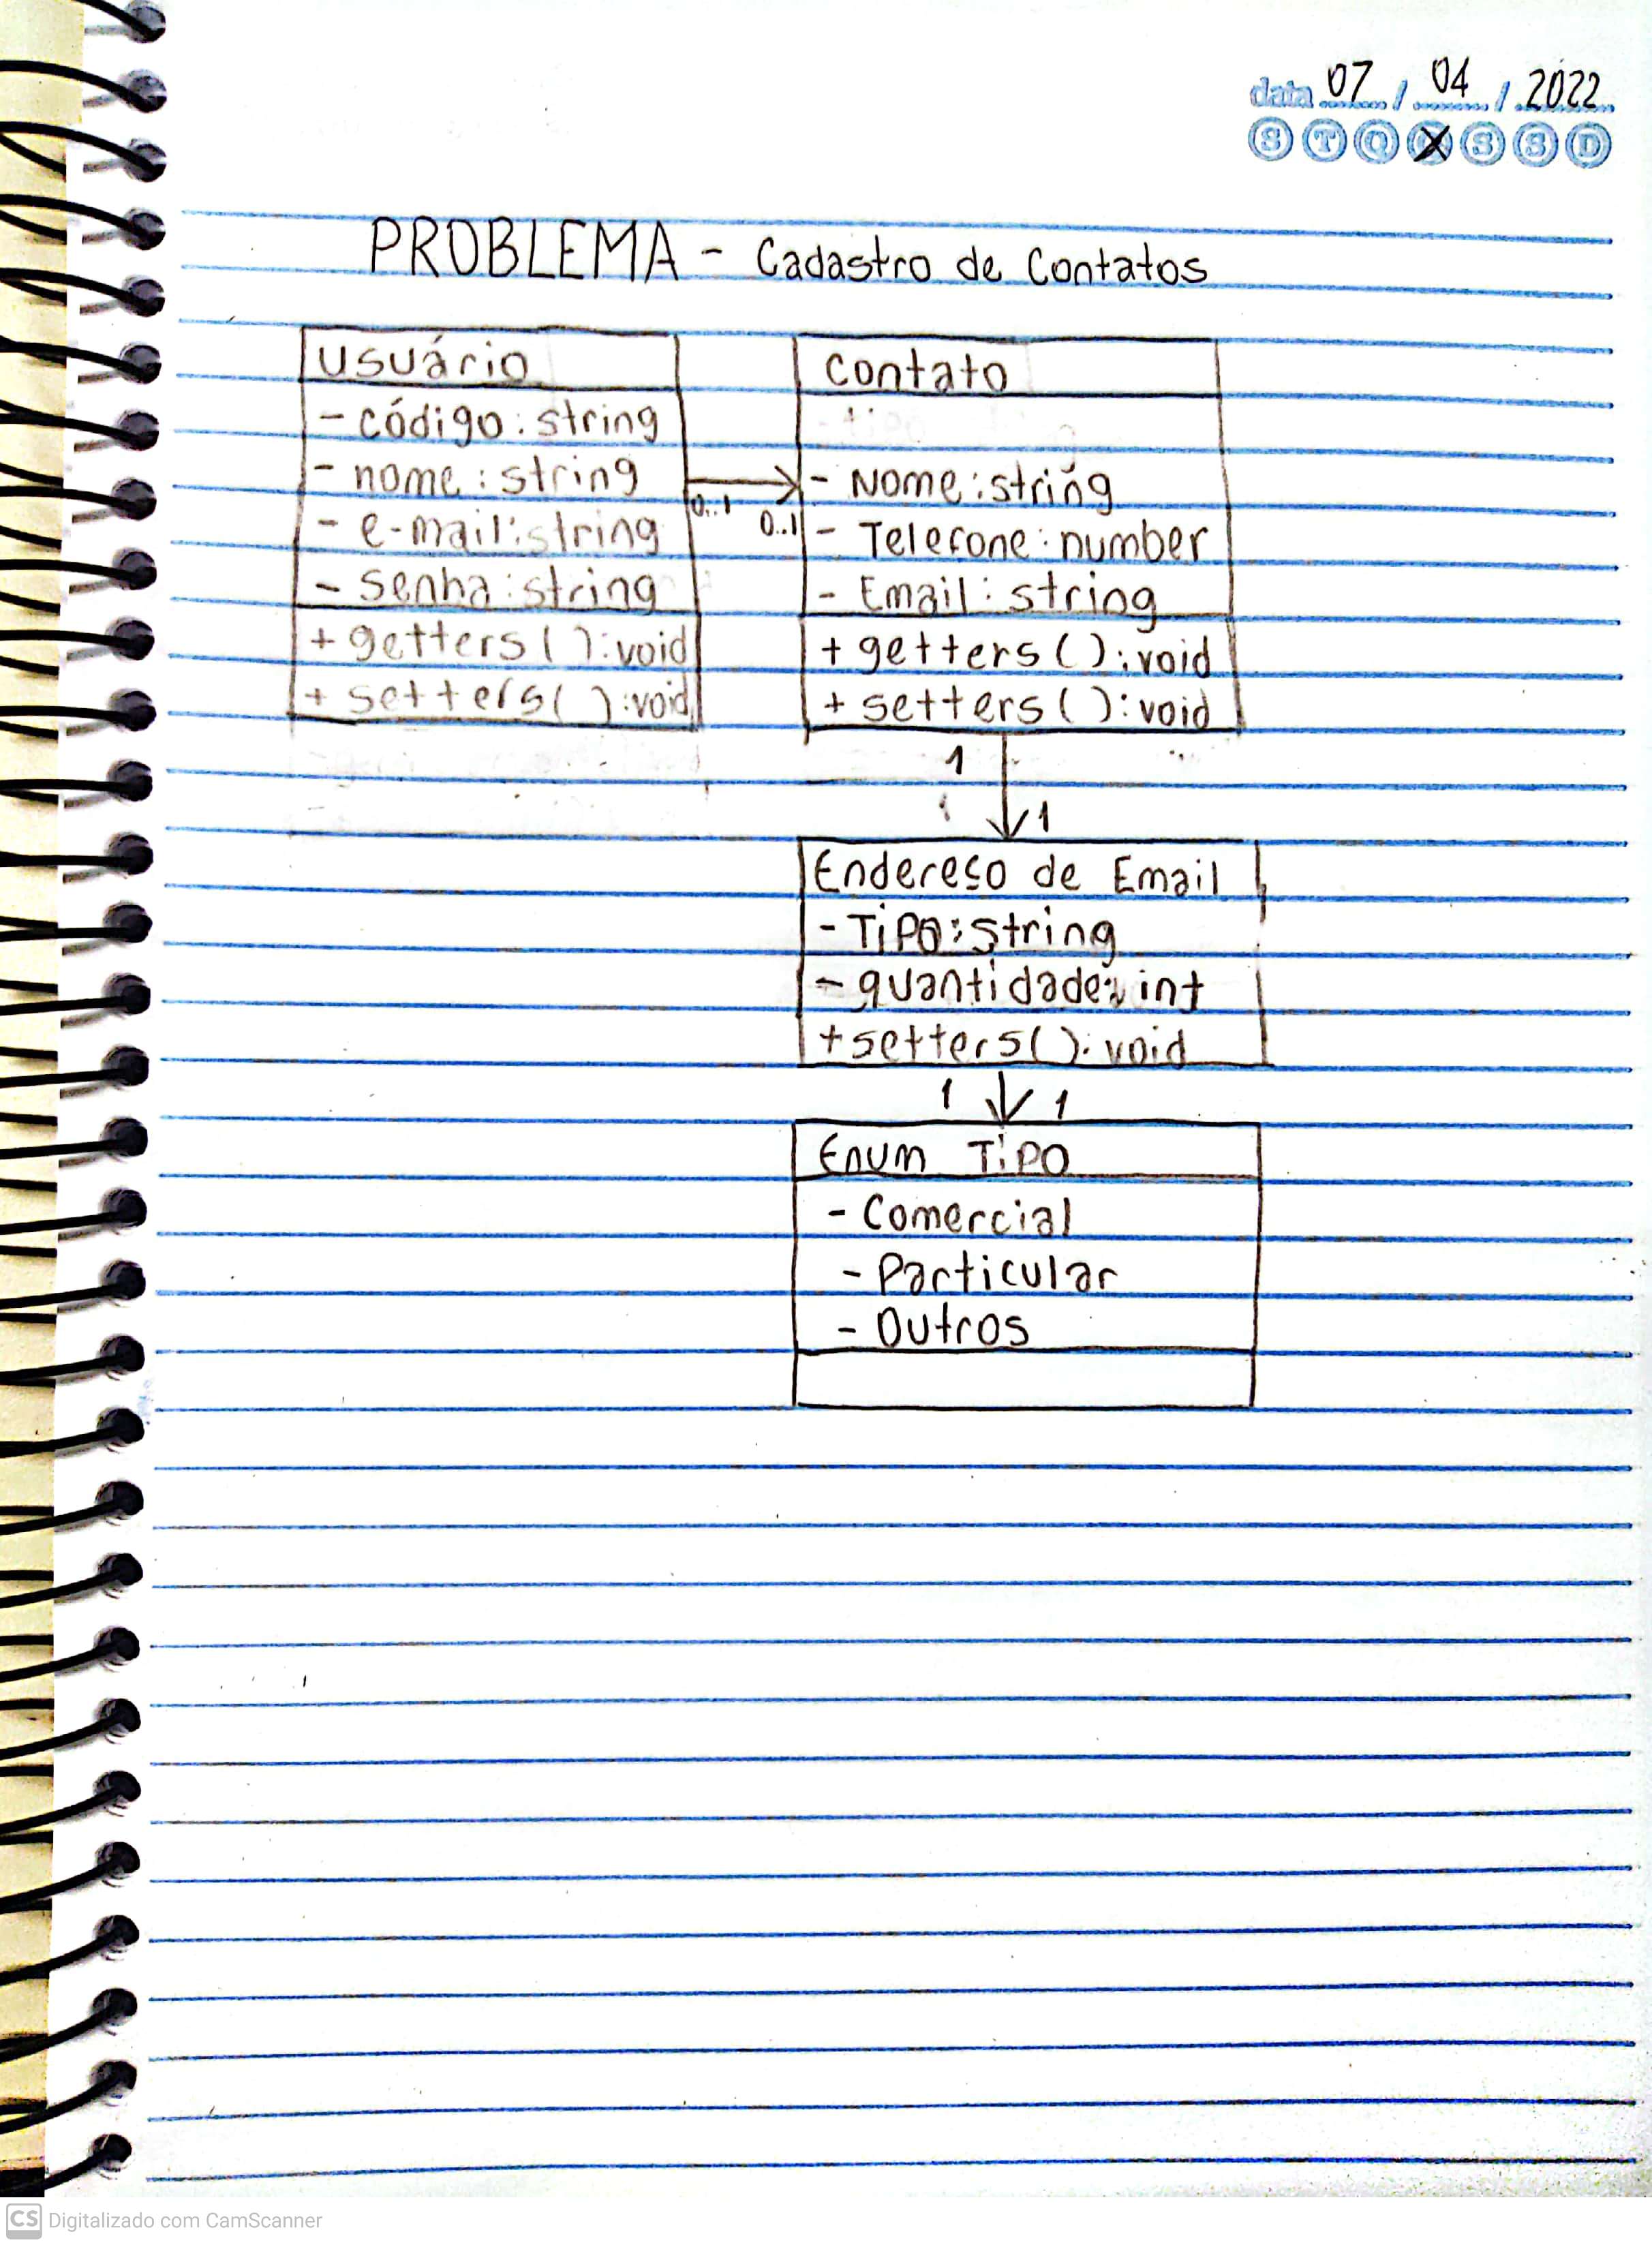 data 07 / 04 / 2022
S T Q X S S D
PROBLEMA - Cadastro de Contatos
usuário
- código: string
- nome: string
- e-mail: string
- senha: string
+ getters( ): void
+ setters( ): void
0..1
0..1
contato
- Nome: string
- Telefone: number
- Email: string
+ getters( ): void
+ setters( ): void
1
1
Endereço de Email
- Tipo: string
- quantidade: int
+ setters( ): void
1 1
Enum Tipo
- Comercial
- Particular
- Outros
CS Digitalizado com CamScanner